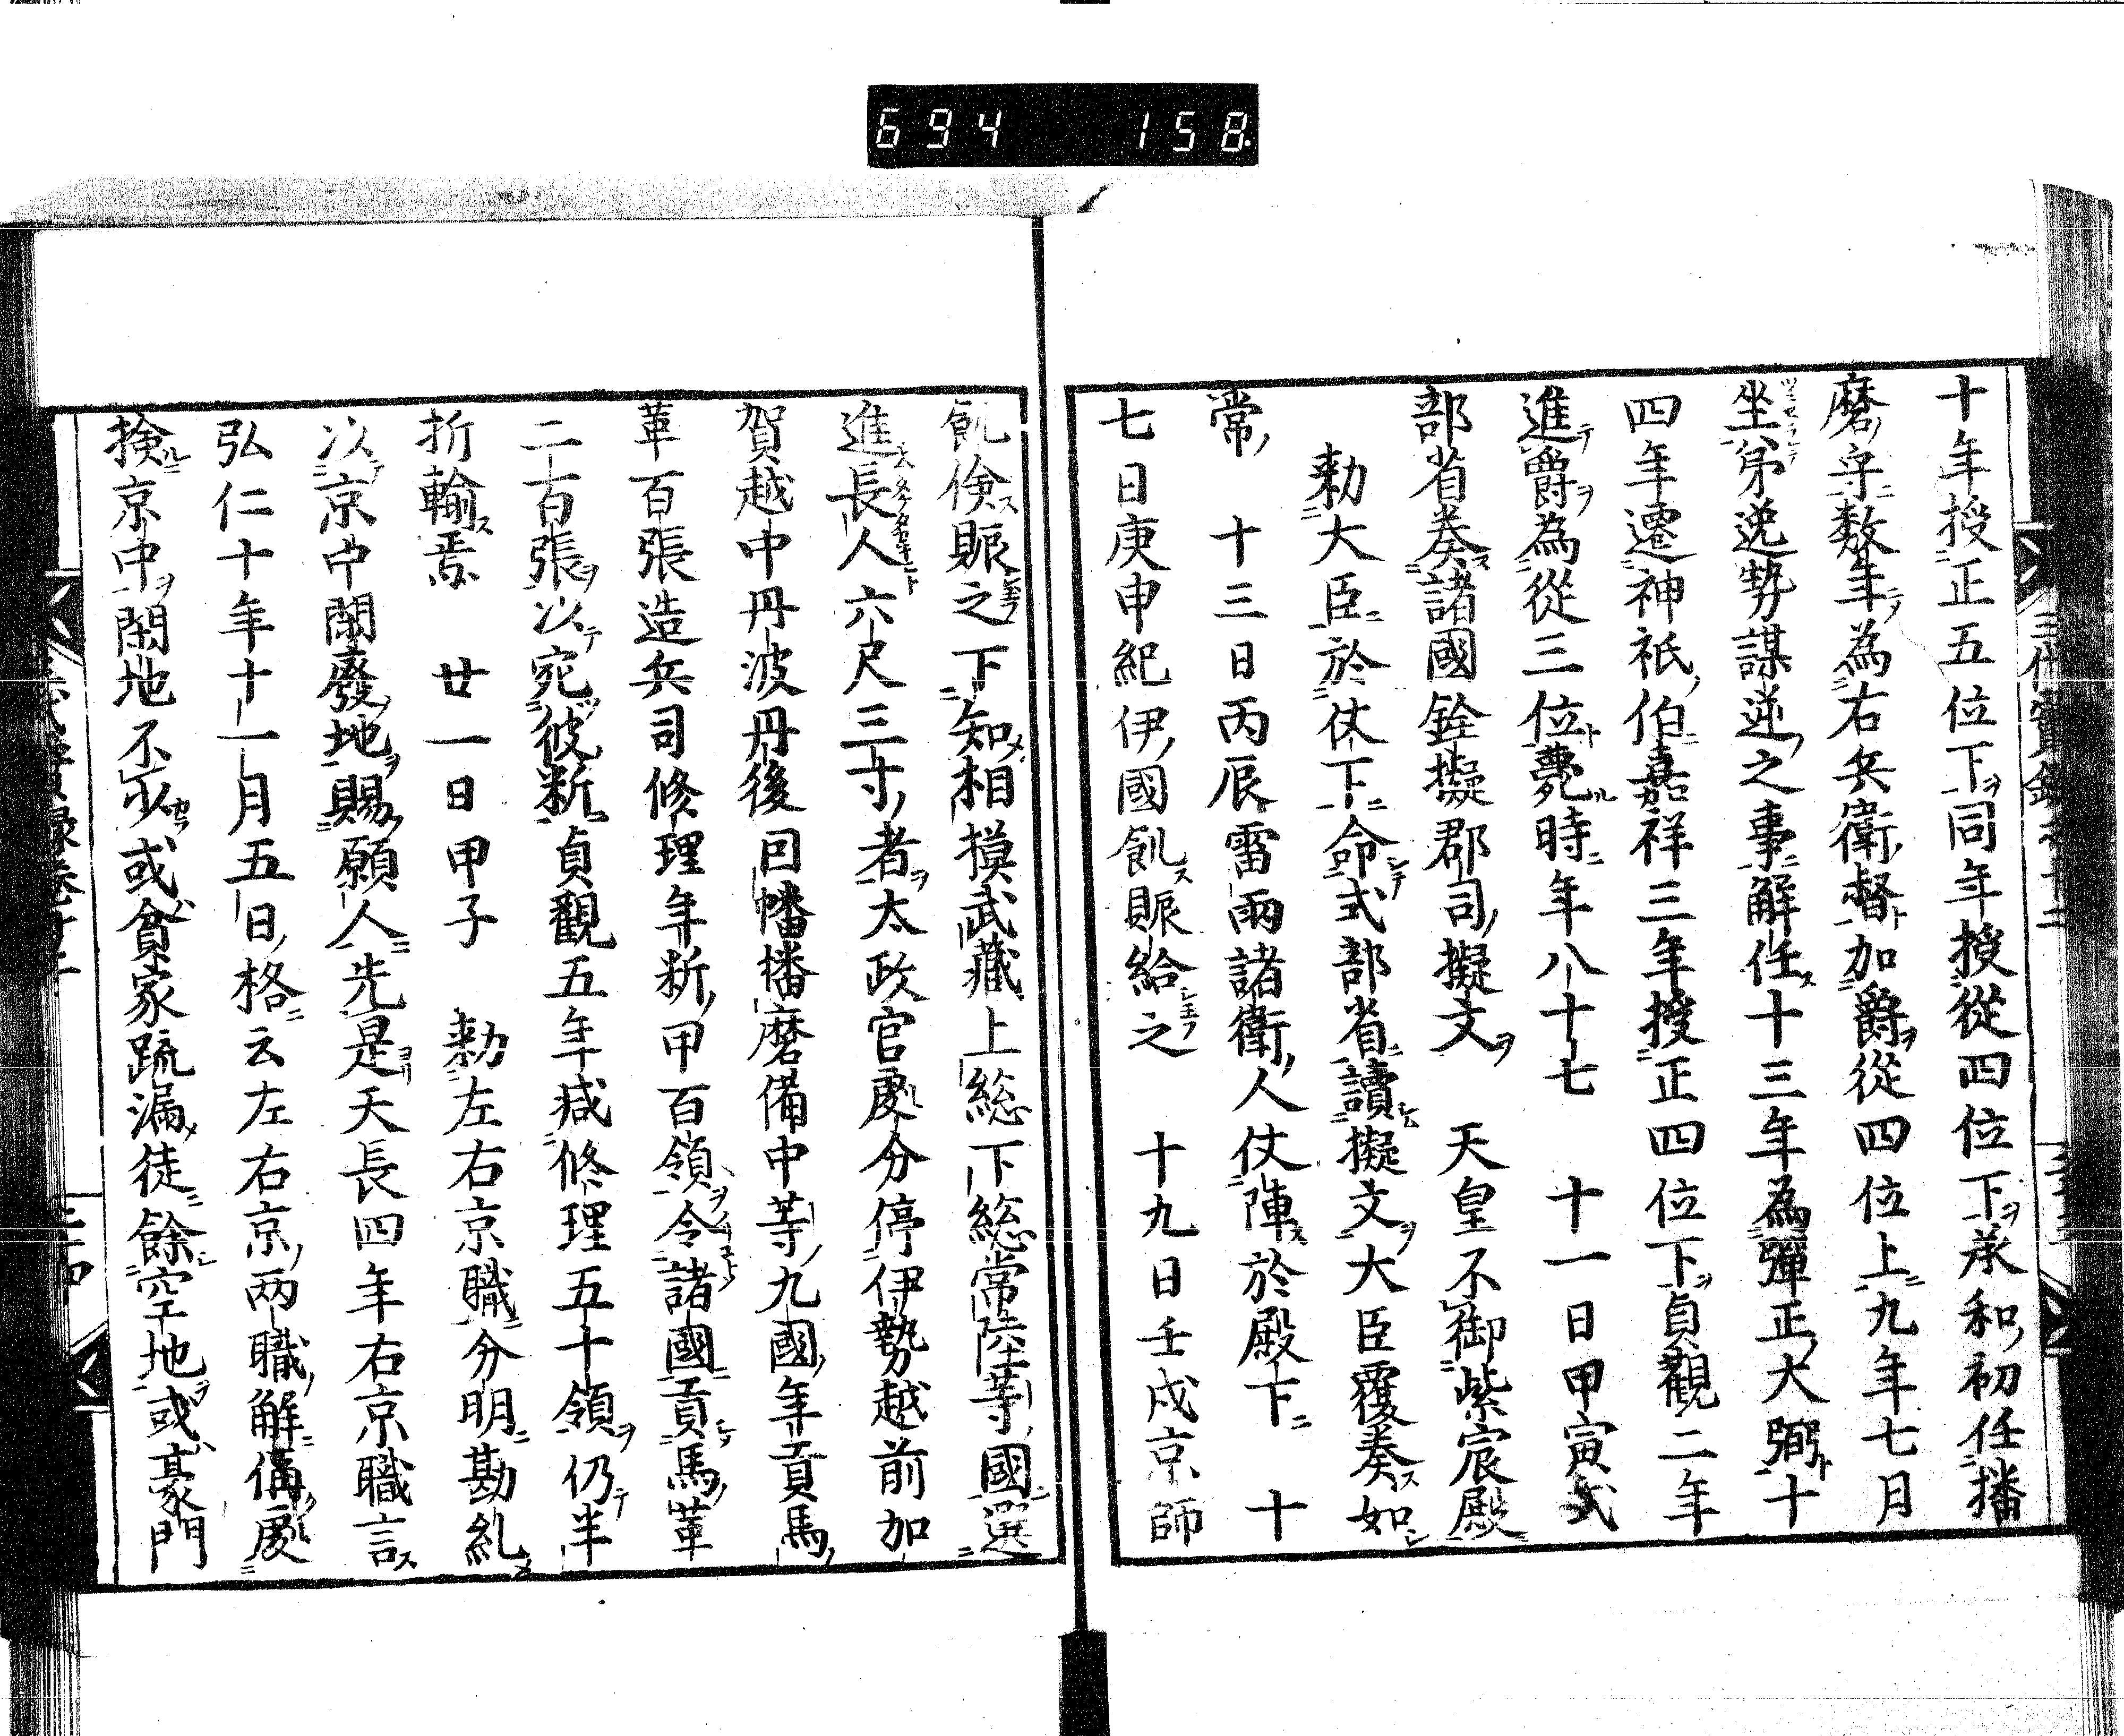 694 158
十年授正五位下同年授從四位下承和初任播
磨守数年為右兵衛督加爵從四位上九年七月
坐弟逸勢謀逆之事解任十三年為彈正大弼十
四年遷神祇伯嘉祥三年授正四位下貞觀二年
進爵為從三位薨時年八十七　十一日甲寅式
部省奏諸國銓擬郡司擬文　天皇不御紫宸殿
勅大臣於仗下命式部省讀擬文大臣覆奏如
常　十三日丙辰雷雨諸衛人仗陣於殿下　十
七日庚申紀伊國飢賑給之　十九日壬戌京師
飢儉賑之下知相摸武藏上総下総常陸等國選
進長人六尺三寸者太政官處分停伊勢越前加
賀越中丹波丹後回幡播磨備中等九國年貢馬
革百張造兵司修理年料甲百領令諸國貢馬革
二百張以宛彼料貞觀五年减修理五十領仍半
折輸焉　廿一日甲子　勅左右京職分明勘糺
以京中閑廢地賜願人先是天長四年右京職言
弘仁十年十一月五日格云左右京兩職解偁處
撿京中閑地不少或貧家疏漏徒餘空地或豪門